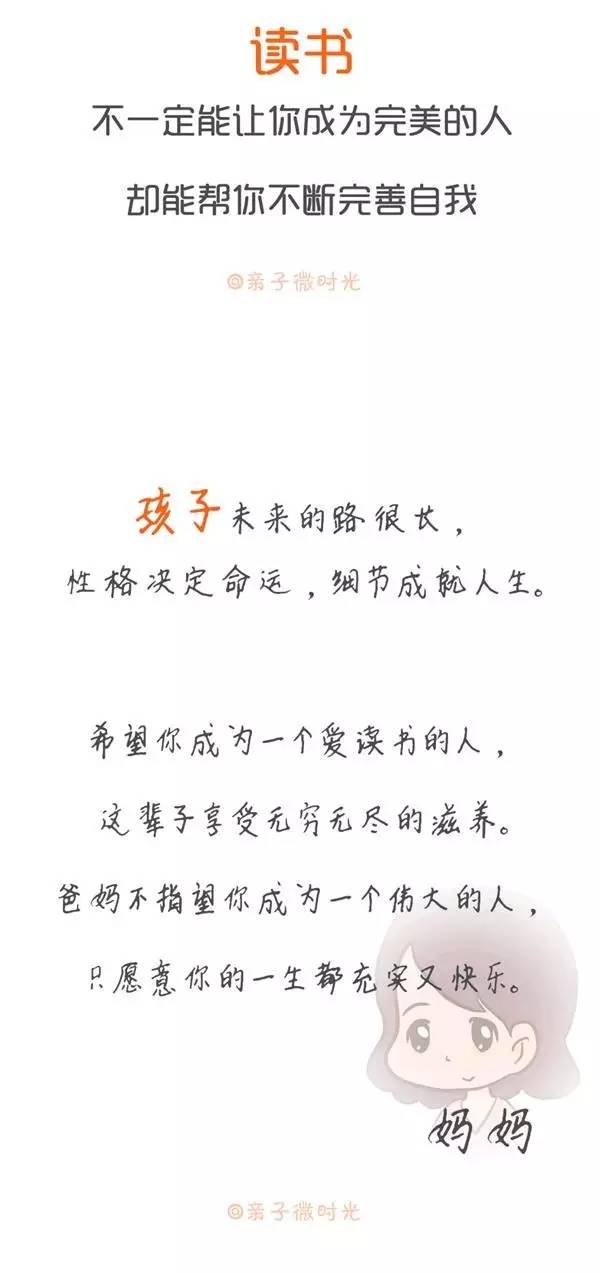 读书
不一定能让你成为完美的人
却能帮你不断完善自我
@亲子微时光
孩子未来的路很长，
性格决定命运，细节成就人生。
希望你成为一个爱读书的人，
这辈子享受无穷无尽的滋养。
爸妈不指望你成为一个伟大的人，
只愿意你的一生都充实又快乐。
妈妈
@亲子微时光